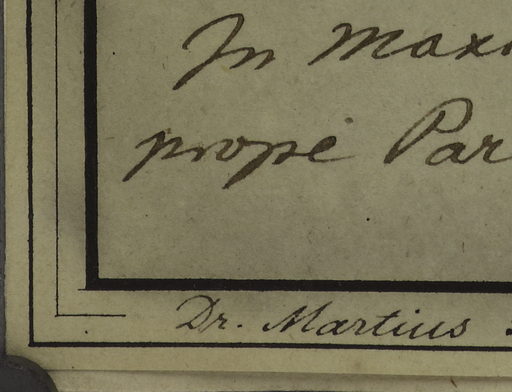 In Max
prope Par
Dr. Martius